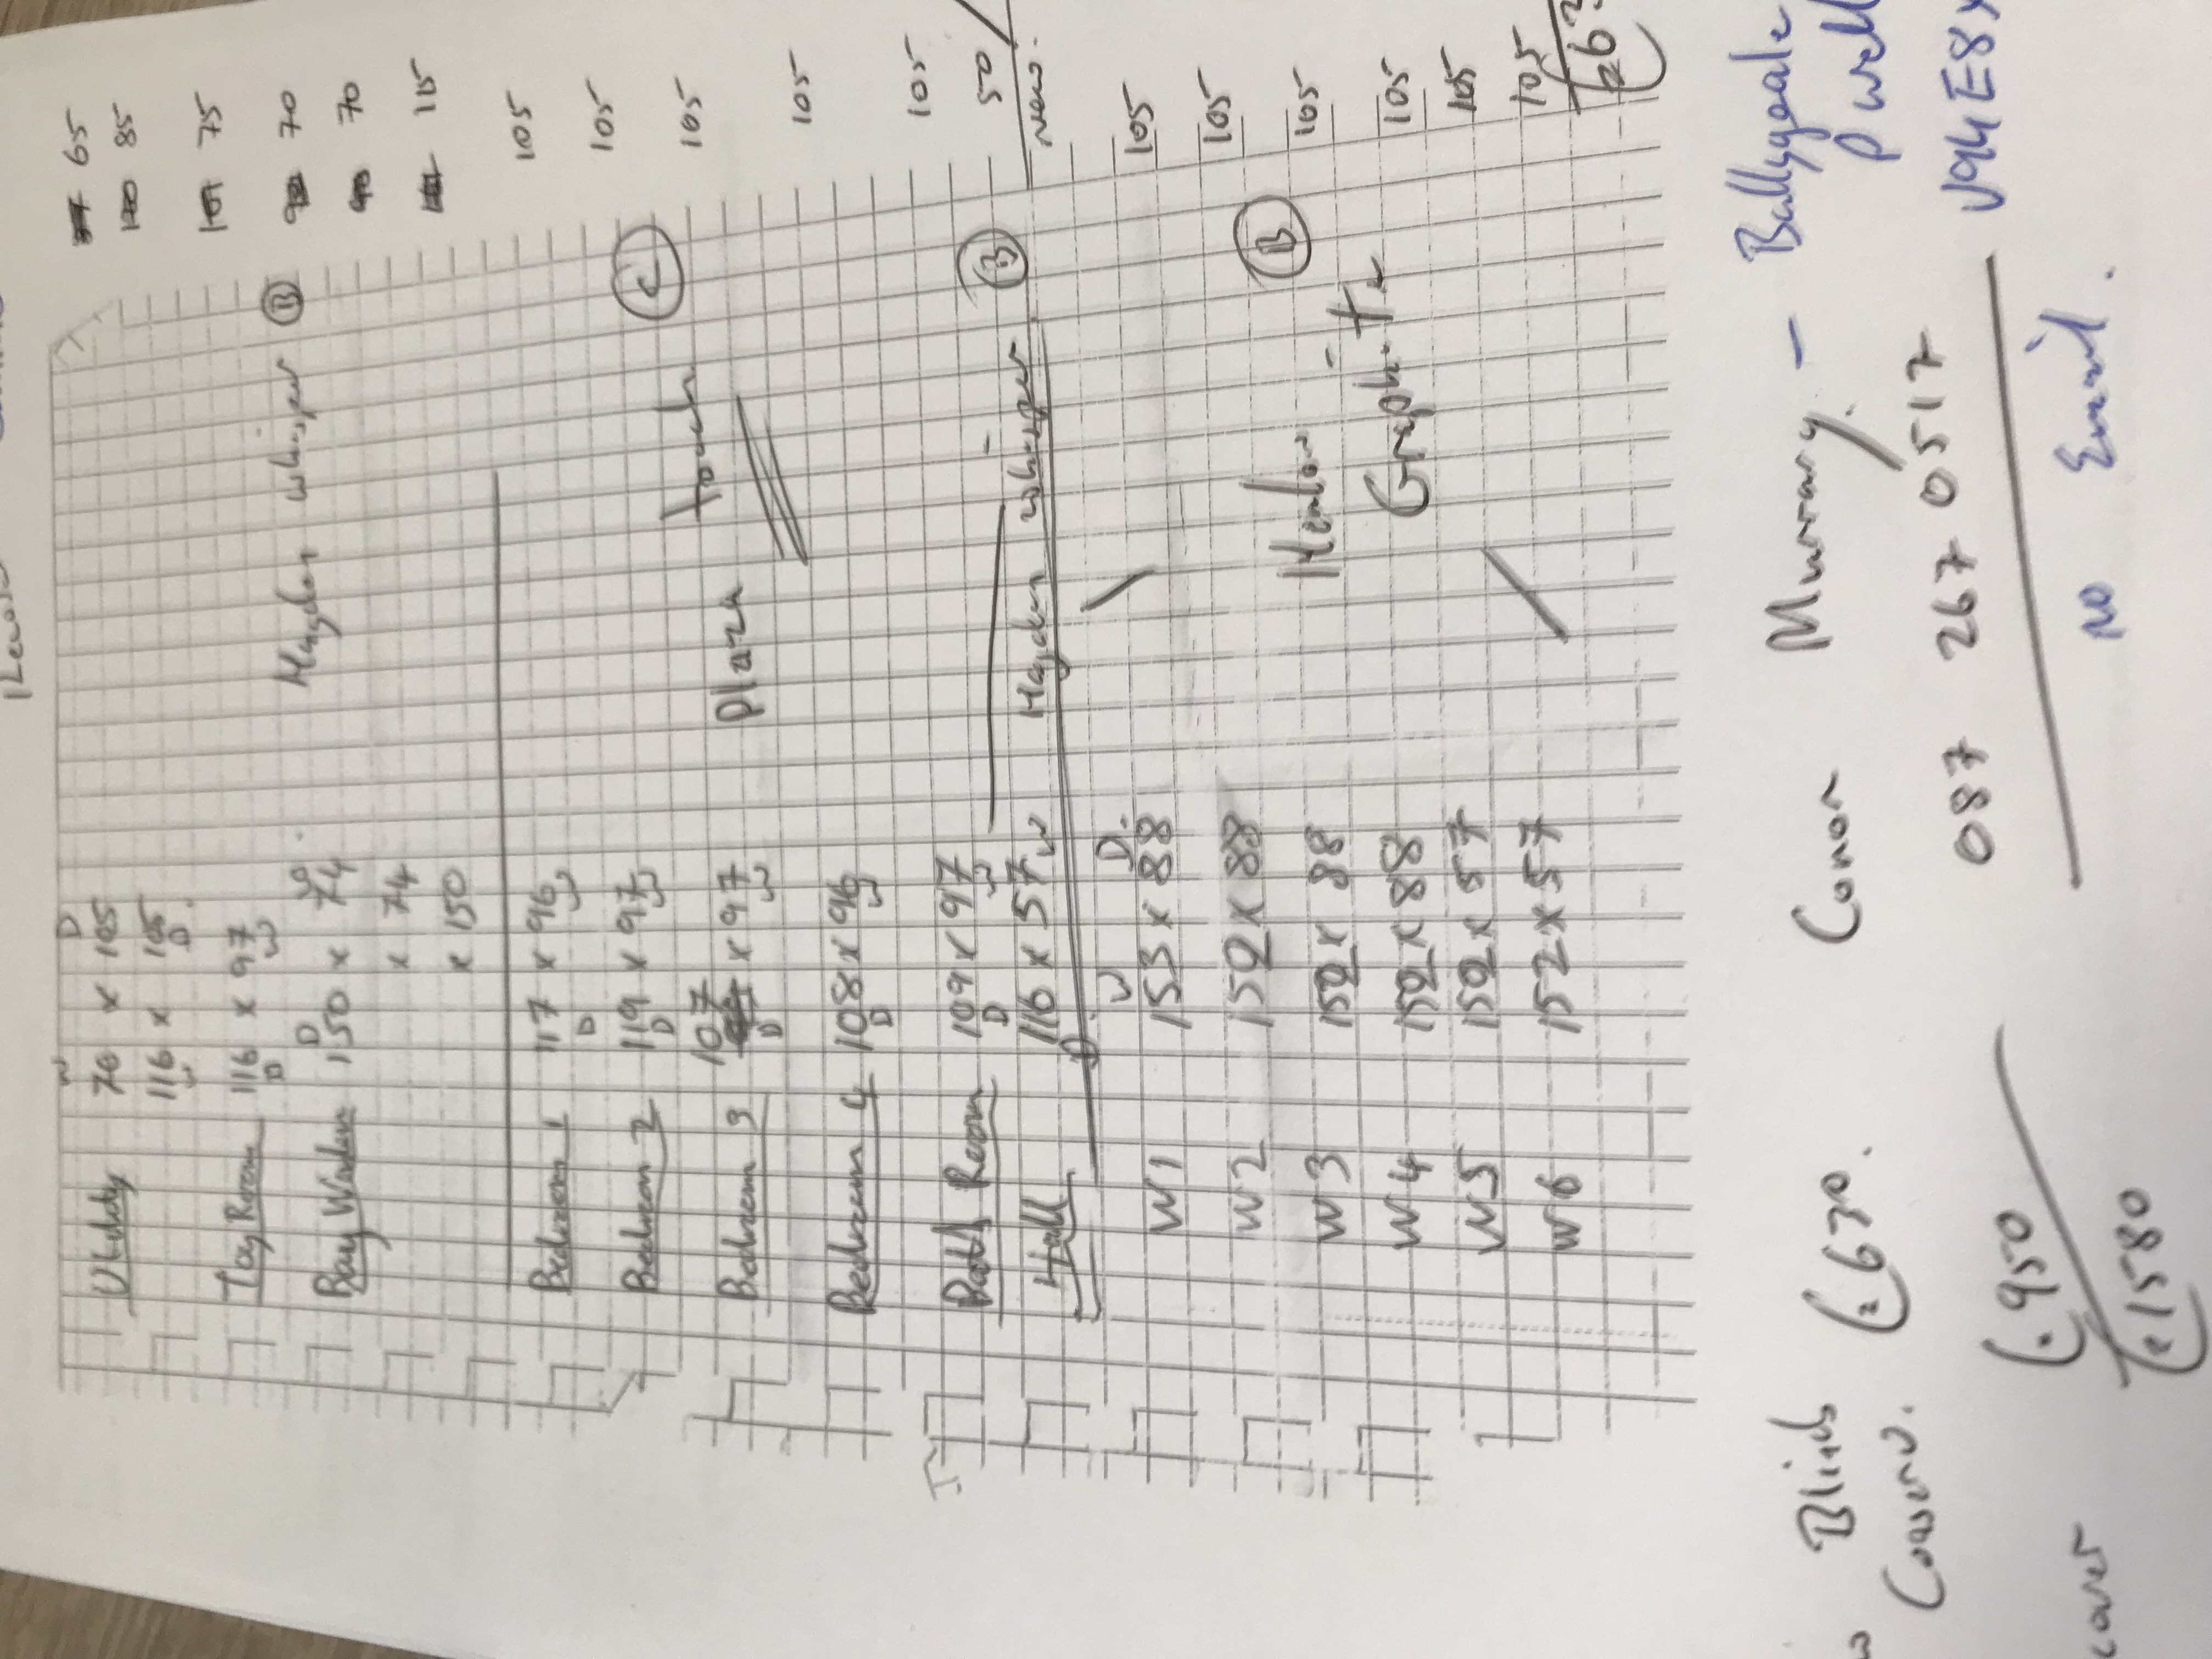 W D
Utility 70 x 105 65
116 x 105 85
W D.
Toy Room 116 x 97 101 75
D W
Hayden whisper B
D W
Bay Window 150 x 74 70
x 74 70
x 150 115
Bedroom 1 117 x 96 105
D W
Bedroom 2 119 x 97 105
D W
touch C
Bedroom 3 107 x 97 105
D W
Plaza
Bedroom 4 108 x 96 105
D W
Bath Room 109 x 97 105
D W
Hall 116 x 57 Hayden whisper B 50
D W
New.
W D.
W1 153 x 88 105
W2 152 x 88 105
W3 152 x 88 Henlow B 105
W4 152 x 88 Graphite 105
W5 152 x 57 105
W6 152 x 57 105
Blinds €630. Conor Murray. - Ballygeale
Conserv. P well
€950 087 267 0517 V94E8X
€1580 No Email.